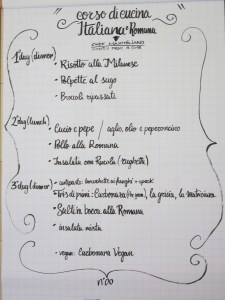 corso di cucina
Italiana e Romana
CHEF MASSIMILIANO
1°day (dinner)
• Risotto alla Milanese
• Polpette al sugo
• Broccoli ripassati
2°day (lunch)
• Cacio e pepe / aglio, olio e peperoncino
• Pollo alla Romana
• Insalata con Rucola (rughetta)
3°day (dinner)
• antipasto: bruschette ai funghi e speck
• Tris di primi: Carbonara, la gricia, la matriciana
• Salti'n bocca alla Romana
• insalata mista
• vegan: Carbonara Vegan